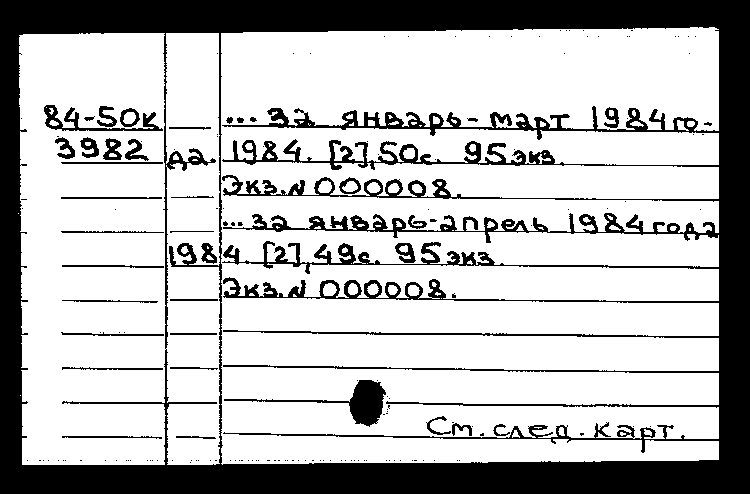 84-50к ... за январь-март 1984го-
3982 да. 1984. [2], 50с. 95экз.
Экз. N 000008.
... за январь-апрель 1984года
1984. [2], 49с. 95экз.
Экз. N 000008.
См. след. карт.